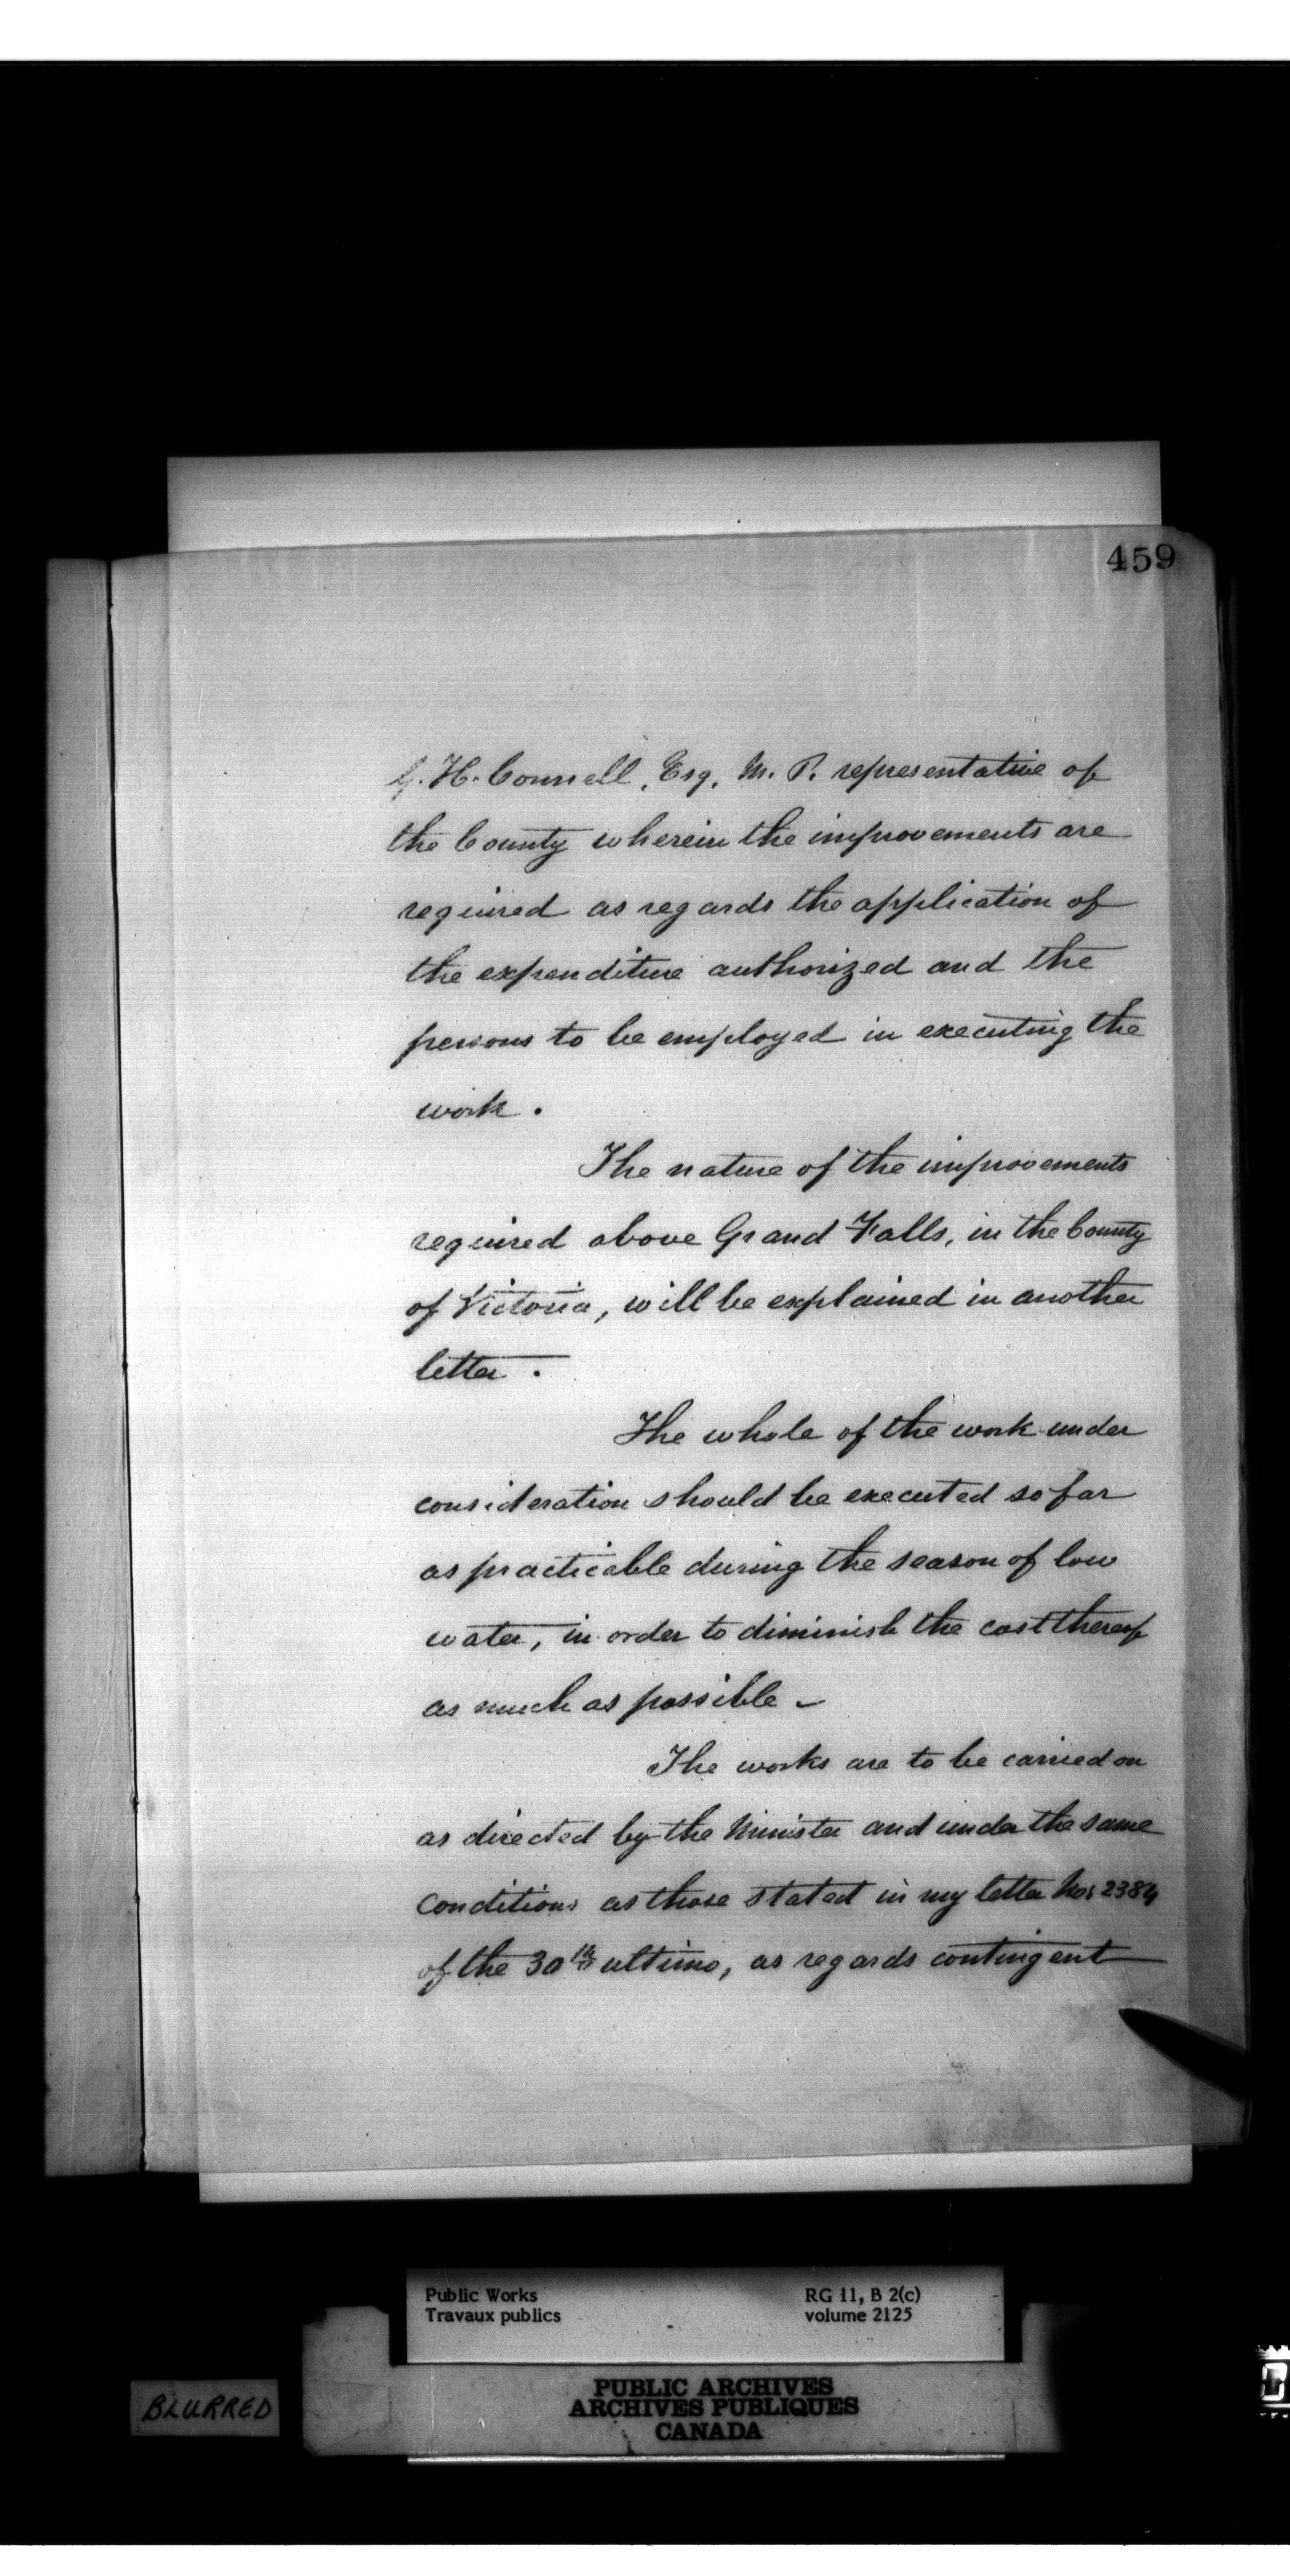 459
G. H. Connell, Esq, M. P. representative of
the County wherein the improvements are
required as regards the application of
the expenditure authorized and the
persons to be employed in executing the
work.
The nature of the improvements
required above Grand Falls, in the County
of Victoria, will be explained in another
letter.
The whole of the work under
consideration should be executed so far
as practicable during the season of low
water, in order to diminish the cost thereof
as much as possible -
The works are to be carried on
as directed by the Minister and under the same
conditions as those stated in my letter No: 2384
of the 30th ultimo, as regards contingent
Public Works
Travaux publics
RG 11, B 2(c)
volume 2125
BLURRED
PUBLIC ARCHIVES
ARCHIVES PUBLIQUES
CANADA